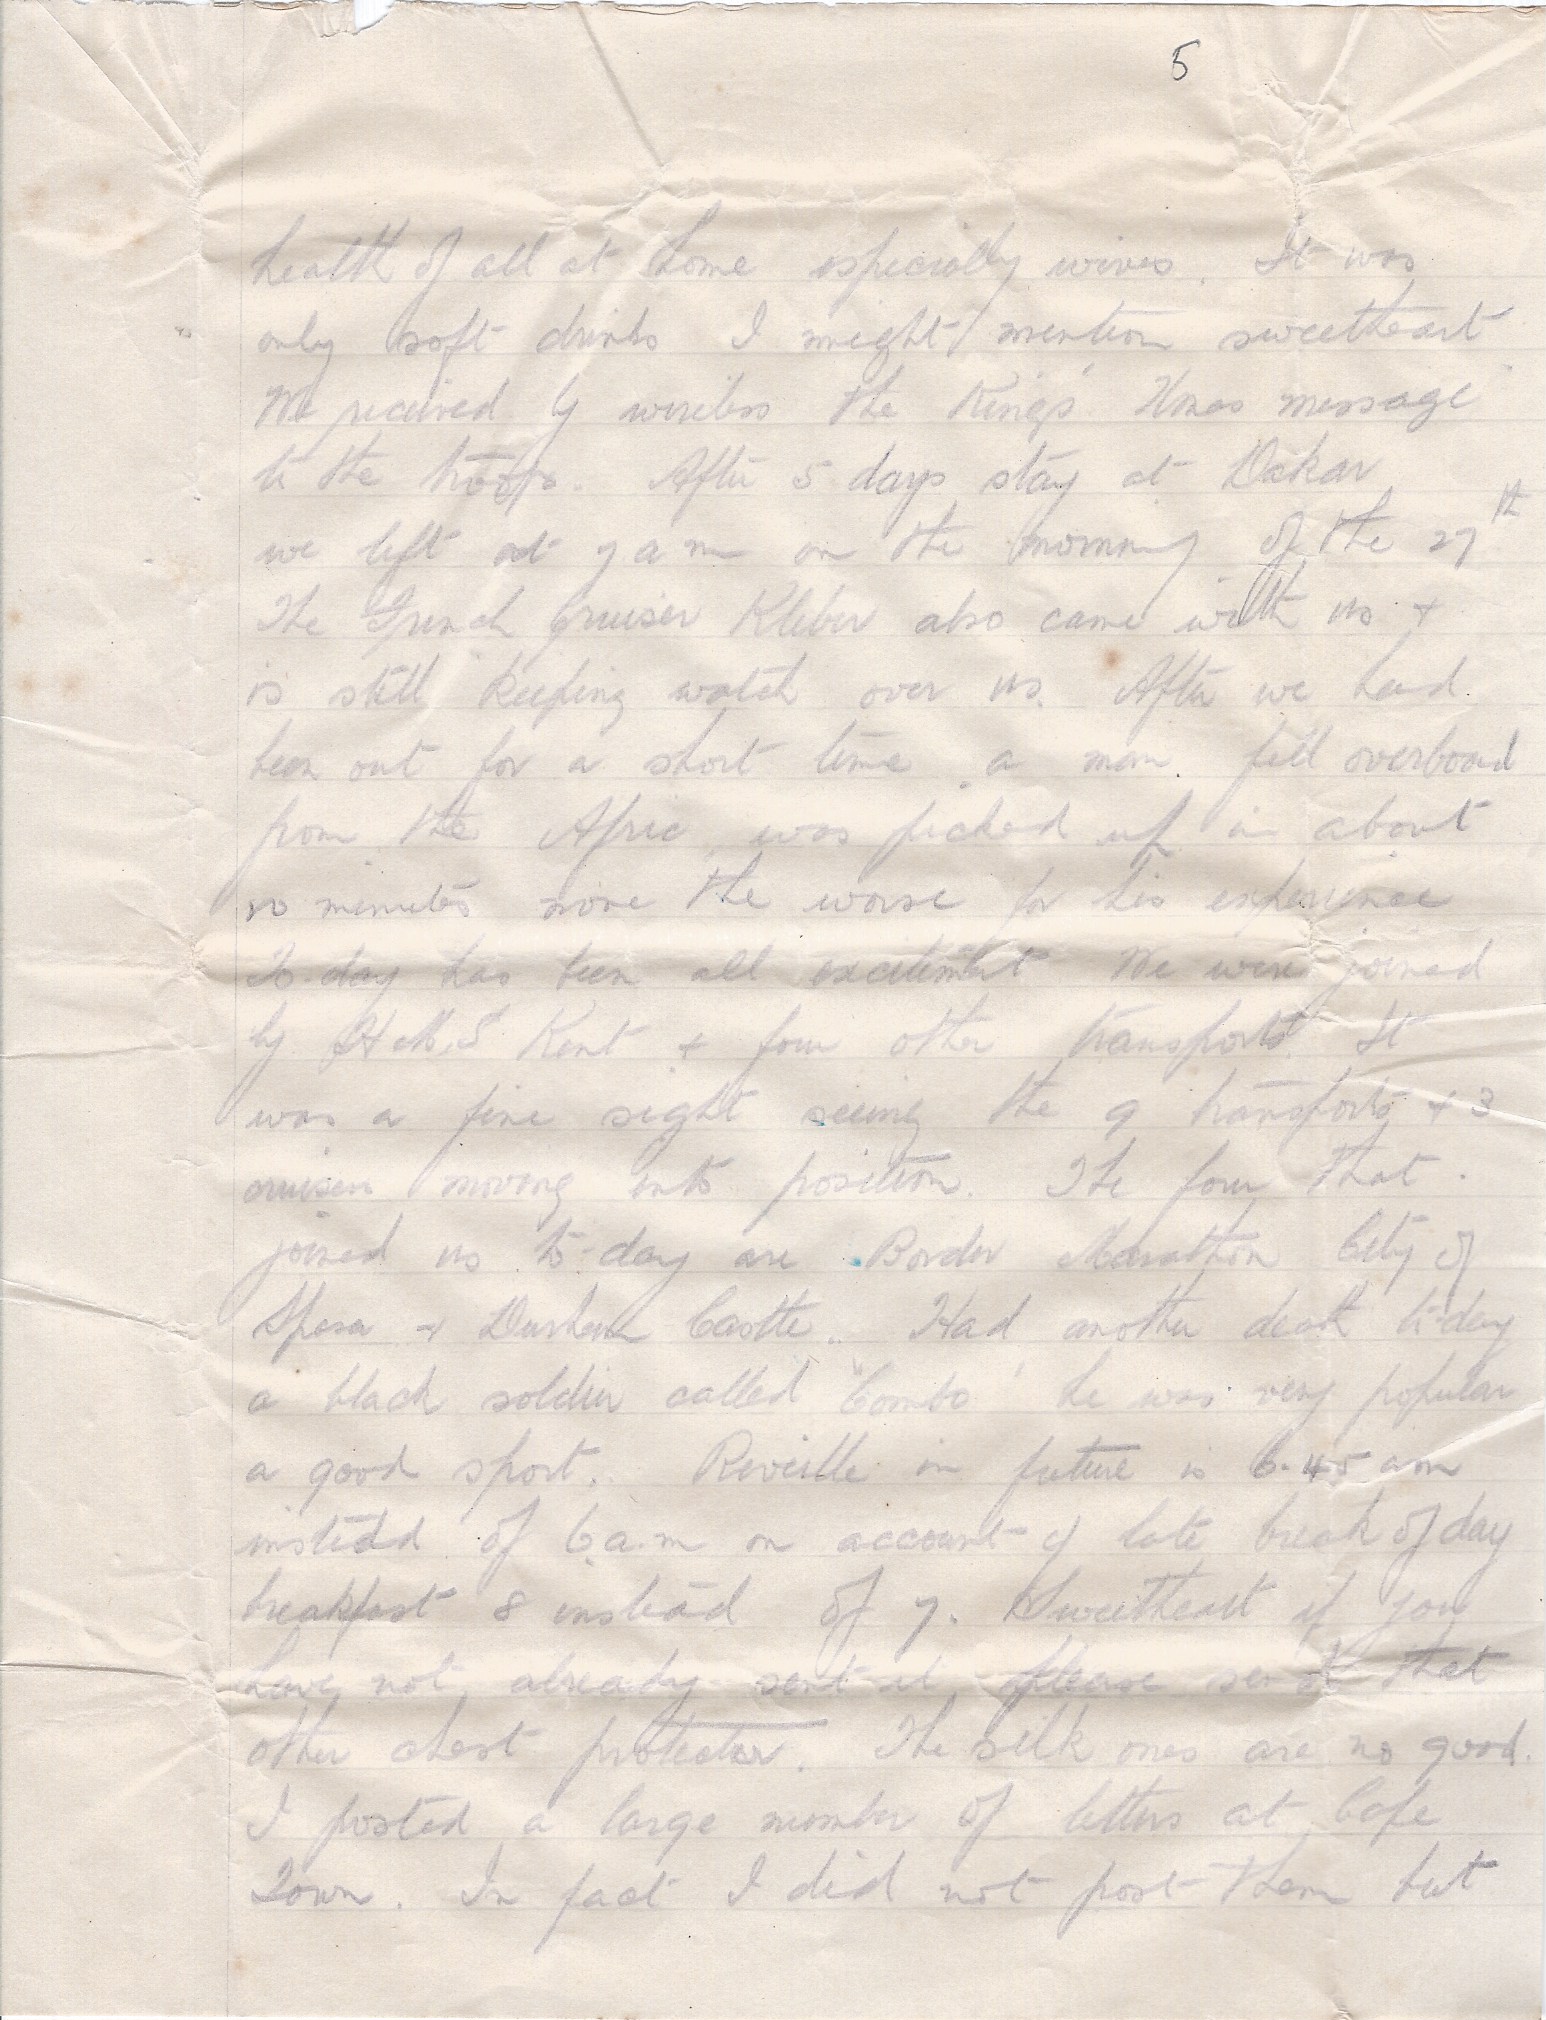 5
health of all at home especially wives. It was
only soft drinks I might mention sweetheart
We received by wireless the King's Xmas message
to the troops. After 5 days stay at Dakar
we left at 7 a m on the morning of the 27th
The French cruiser Kleber also came with us +
is still keeping watch over us. After we had
been out for a short time a man fell overboard
from the Afric was picked up in about
10 minutes none the worse for his experience
To-day has been all excitement We were joined
by H.M.S Kent + four other transports It
was a fine sight seeing the 9 transports + 3
cruisers moving into position. The four that
joined us to-day are Border Marathon City of
+ Durham Castle.. Had another death to-day
a black soldier called "Combo" he was very popular
a good sport. Reveille in future is 6.45 am
instead of 6 a.m on account of late break of day
breakfast 8 instead of 7. Sweetheart if you
have not already sent it please send that
other chest protector. The silk ones are no good.
I posted a large number of letters at Cape
Town. In fact I did not post them but